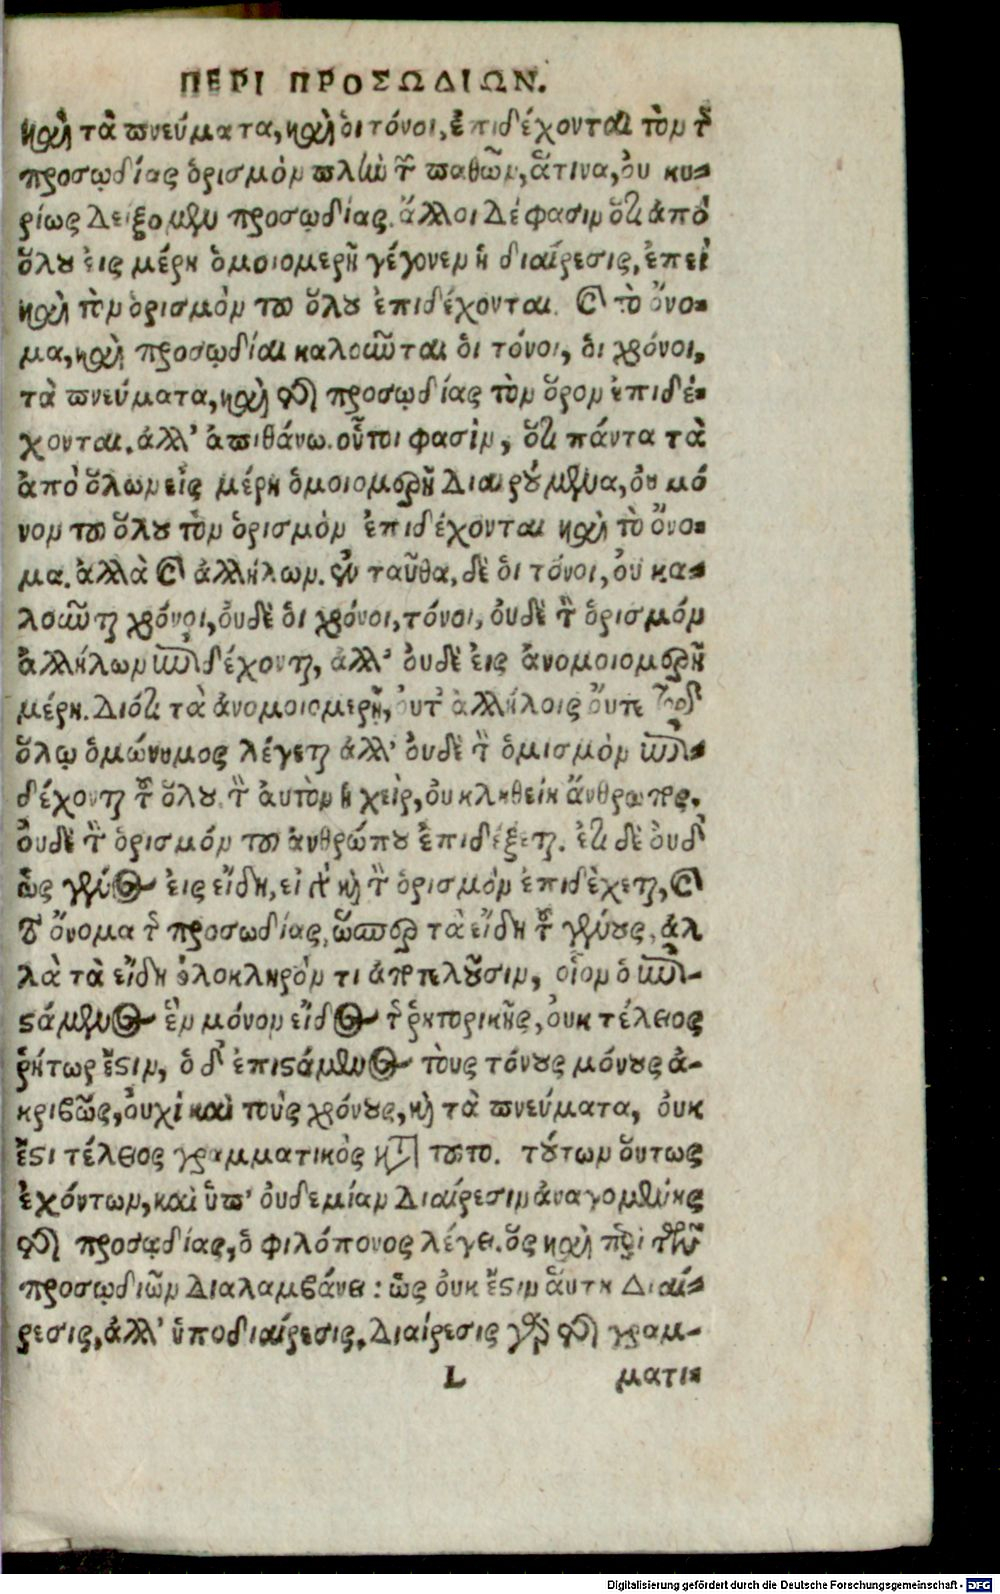 ΠΕΡΙ ΠΡΟΣΩΔΙΩΝ.
καὶ τὰ πνεύματα, καὶ ὁι τόνοι, ἐπιδέχονται τὸν τῆς
προσῳδίας ὁρισμὸν πλὴν τῶν παθῶν, ἅτινα, ὀυ κυ-
ρίως λείξομεν προσῳδίας. ἄλλοι δέ φασιν ὅτι ἀπὸ
ὅλου ἐις μέρη ὁμοιομερῆ γέγονεν ἡ διαίρεσις, ἐπεὶ
καὶ τὸν ὁρισμὸν τοῦ ὅλου ἐπιδέχονται. καὶ τὸ ὄνο-
μα, καὶ προσῳδίαι καλοῦνται ὁι τόνοι, ὁι χρόνοι,
τὰ πνεύματα, καὶ τῆς προσῳδίας τὸν ὅρον ἐπιδέ-
χονται. ἀλλ' ἀπιθάνω. οὗτοι φασὶν, ὅτι πάντα τὰ
ἀπὸ ὅλων εἰς μέρη ὁμοιομερῆ διαιρούμενα, ὀυ μό
νον τοῦ ὅλου τὸν ὁρισμὸν ἐπιδέχονται καὶ τὸ ὄνο-
μα. ἀλλὰ καὶ ἀλλήλων. ἐν ταῦθα, δὲ ὁι τόνοι, ὀυ κα-
λοῦνται χρόνοι, ὀυδὲ ὁι χρόνοι, τόνοι, ὀυδὲ τὸν ὁρισμόν
ἀλλήλων ἐπιδέχονται, ἀλλ' ὀυδὲ ἐις ἀνομοιομερῆ
μέρη. Διότι τὰ ἀνομοιομερῆ, ὀυτ ἀλλήλοις ὄυτε τῷ
ὅλῳ ὁμώνυμος λέγεται ἀλλ' ὀυδὲ τὸν ὁμισμὸν ἐπι-
δέχονται τοῦ ὅλου. τὸν ἀυτὸν ἡ χεὶρ, ὀυ κληθείη ἄνθρωπος.
ὀυδὲ τὸν ὁρισμόν τοῦ ἀνθρώπου ἐπιδέξεται. ἔτι δὲ ὀυδ'
ὡς γένος ἐις εἴδη, εἰ καὶ τὸν ὁρισμὸν ἐπιδέχεται, καὶ
τὸ ὄνομα τῆς προσωδίας, ὥσπερ τὰ εἴδη τοῦ γένους, ἀλ
λὰ τὰ εἴδη ὁλοκληρόν τι ἀποτελοῦσιν, οἷον ὁ ἐπι-
στάμενος ἓν μόνον εἶδος τῆς ῥητορικῆς, ὀυκ τέλειος
ῥήτωρ ἔστιν, ὁ δ' ἐπιστάμενος τοὺς τόνους μόνους ἀ-
κριβῶς, ὀυχὶ καὶ τοὺς χρόνους, καὶ τὰ πνεύματα, ὀυκ
ἔστι τέλειος γραμματικὸς κατὰ τοῦτο. τούτων ὅυτως
ἐχόντων, καὶ ὑπ' ὀυδεμίαν Διαίρεσιν ἀναγομένης
τῆς προσῳδίας, ὁ φιλόπονος λέγει. ὅς καὶ περὶ τῶν
προσῳδιῶν διαλαμβάνει: ὡς ὀυκ ἔστιν ἅυτη Διαί-
ρεσις, ἀλλ' ὑποδιαίρεσις. Διαίρεσις γὰρ τῆς γραμ-
L ματι-
Digitalisierung gefördert durch die Deutsche Forschungsgemeinschaft - DFG